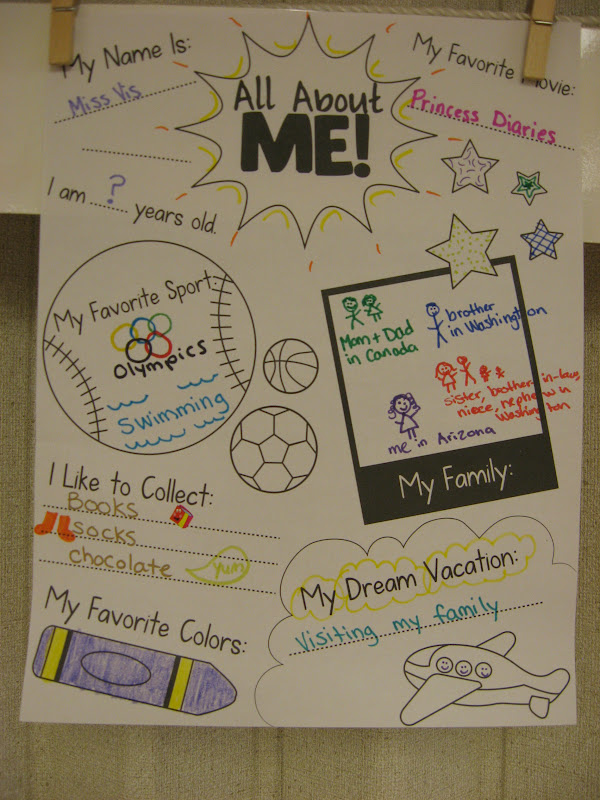 My Name Is:
Miss Vis
All About
ME!
My Favorite Movie:
Princess Diaries
I am ? years old.
My Favorite Sport:
Olympics
Swimming
Mom + Dad
in Canada
brother
in Washington
sister, brother-in-law,
niece, nephew in
Washington
me in Arizona
My Family:
I Like to Collect:
Books
socks
chocolate
Yum
My Dream Vacation:
Visiting my family
My Favorite Colors: